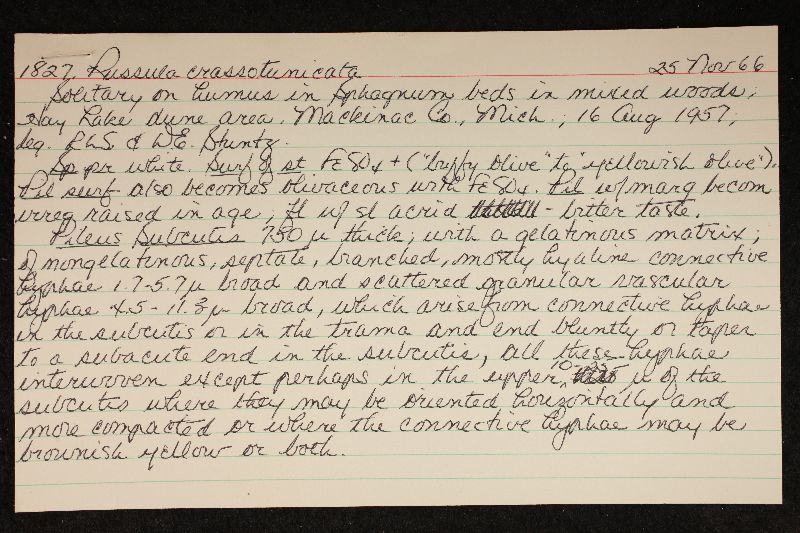 1827. Russula crassotunicata 25 Nov 66
Solitary on humus in Sphagnum beds in mixed woods,
Hay Lake dune area, Mackinac Co., Mich., 16 Aug 1957,
leg. RLS. & D.E. Stuntz.
Sp pr white. Surf of st FeSO4 + ("buffy olive" to "yellowish olive").
Pil surf also becomes olivaceous with FeSO4. Pil w/ marg becom
irreg raised in age, fl w/ sl acrid - bitter taste.
Pileus Subcutis 750 µ thick; with a gelatinous matrix;
of nongelatinous, septate, branched, mostly hyaline connective
hyphae 1.7-5.7µ broad and scattered granular vascular
hyphae 4.5-11.3µ broad, which arise from connective hyphae
in the subcutis or in the trama and end bluntly or taper
to a subacute end in the subcutis, all these hyphae
interwoven except perhaps in the upper 10 µ of the
subcutis where they may be oriented horizontally and
more compacted or where the connective hyphae may be
brownish yellow or both.